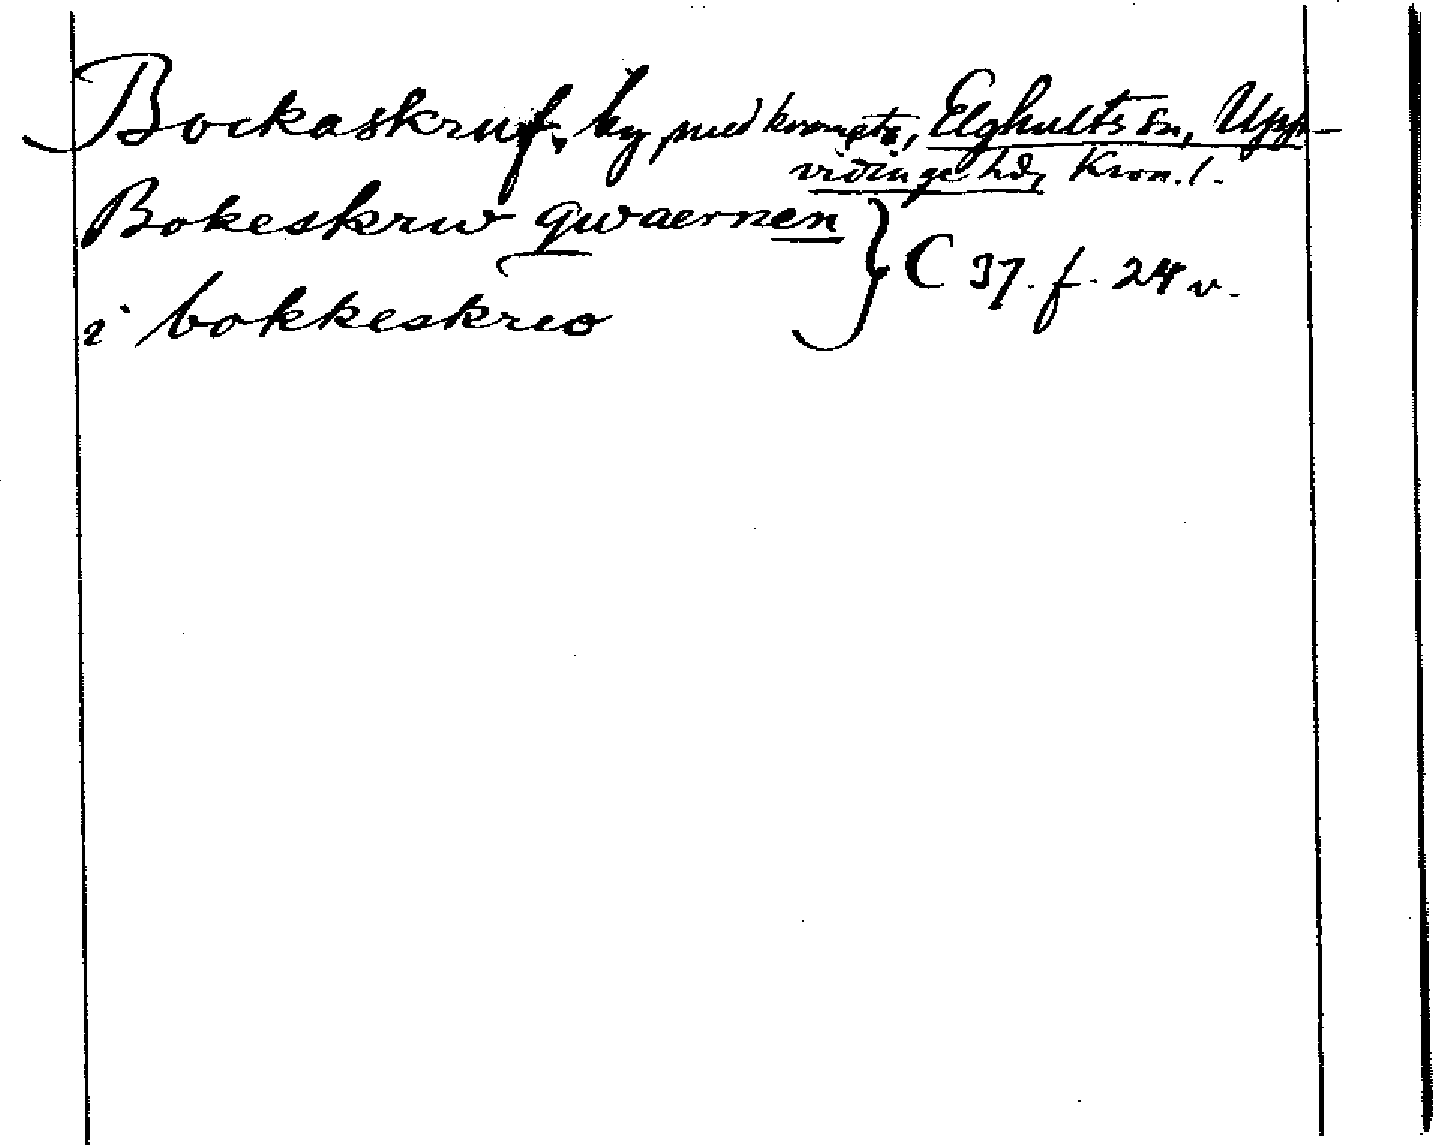 Bockaskruf, by med kronoets, Elghults sn, Upp-
vidinge hd, Kron. l.
Bokeskrw qwaernen
i bokkeskrw
} C 37. f. 24 v.